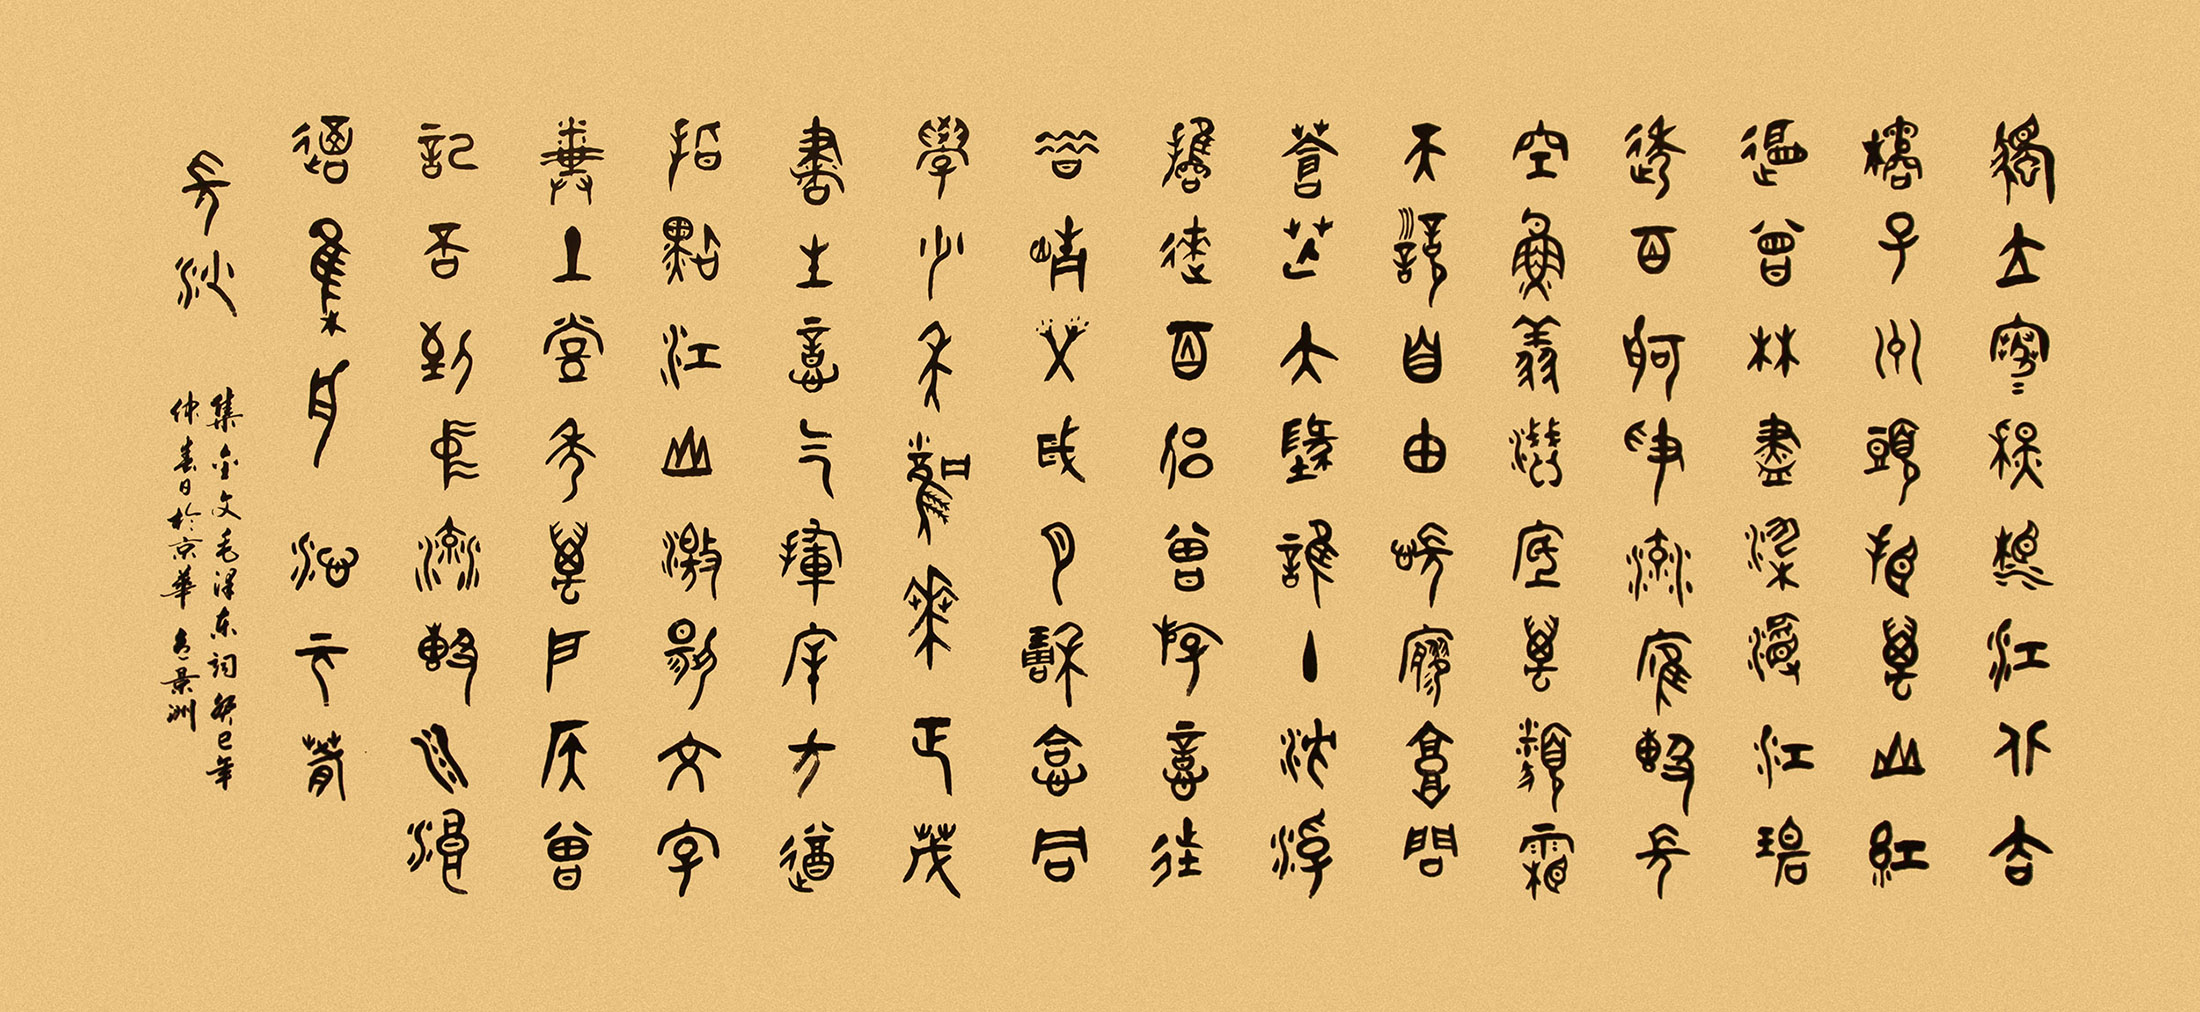 獨立寒秋湘江北去
橘子洲頭看萬山紅
遍曾林盡染漫江碧
透百舸爭流鷹擊長
空魚翔淺底萬類霜
天競自由悵寥廓問
蒼茫大地誰主沉浮
攜來百侶曾游憶往
昔崢嶸歲月稠恰同
學少年風華正茂
書生意氣揮斥方遒
指點江山激揚文字
糞土當年萬戶侯曾
記否到中流擊水浪
遏飛舟 沁元春
長沙
集金文毛澤东詞癸巳年
仲春日於京華 景洲